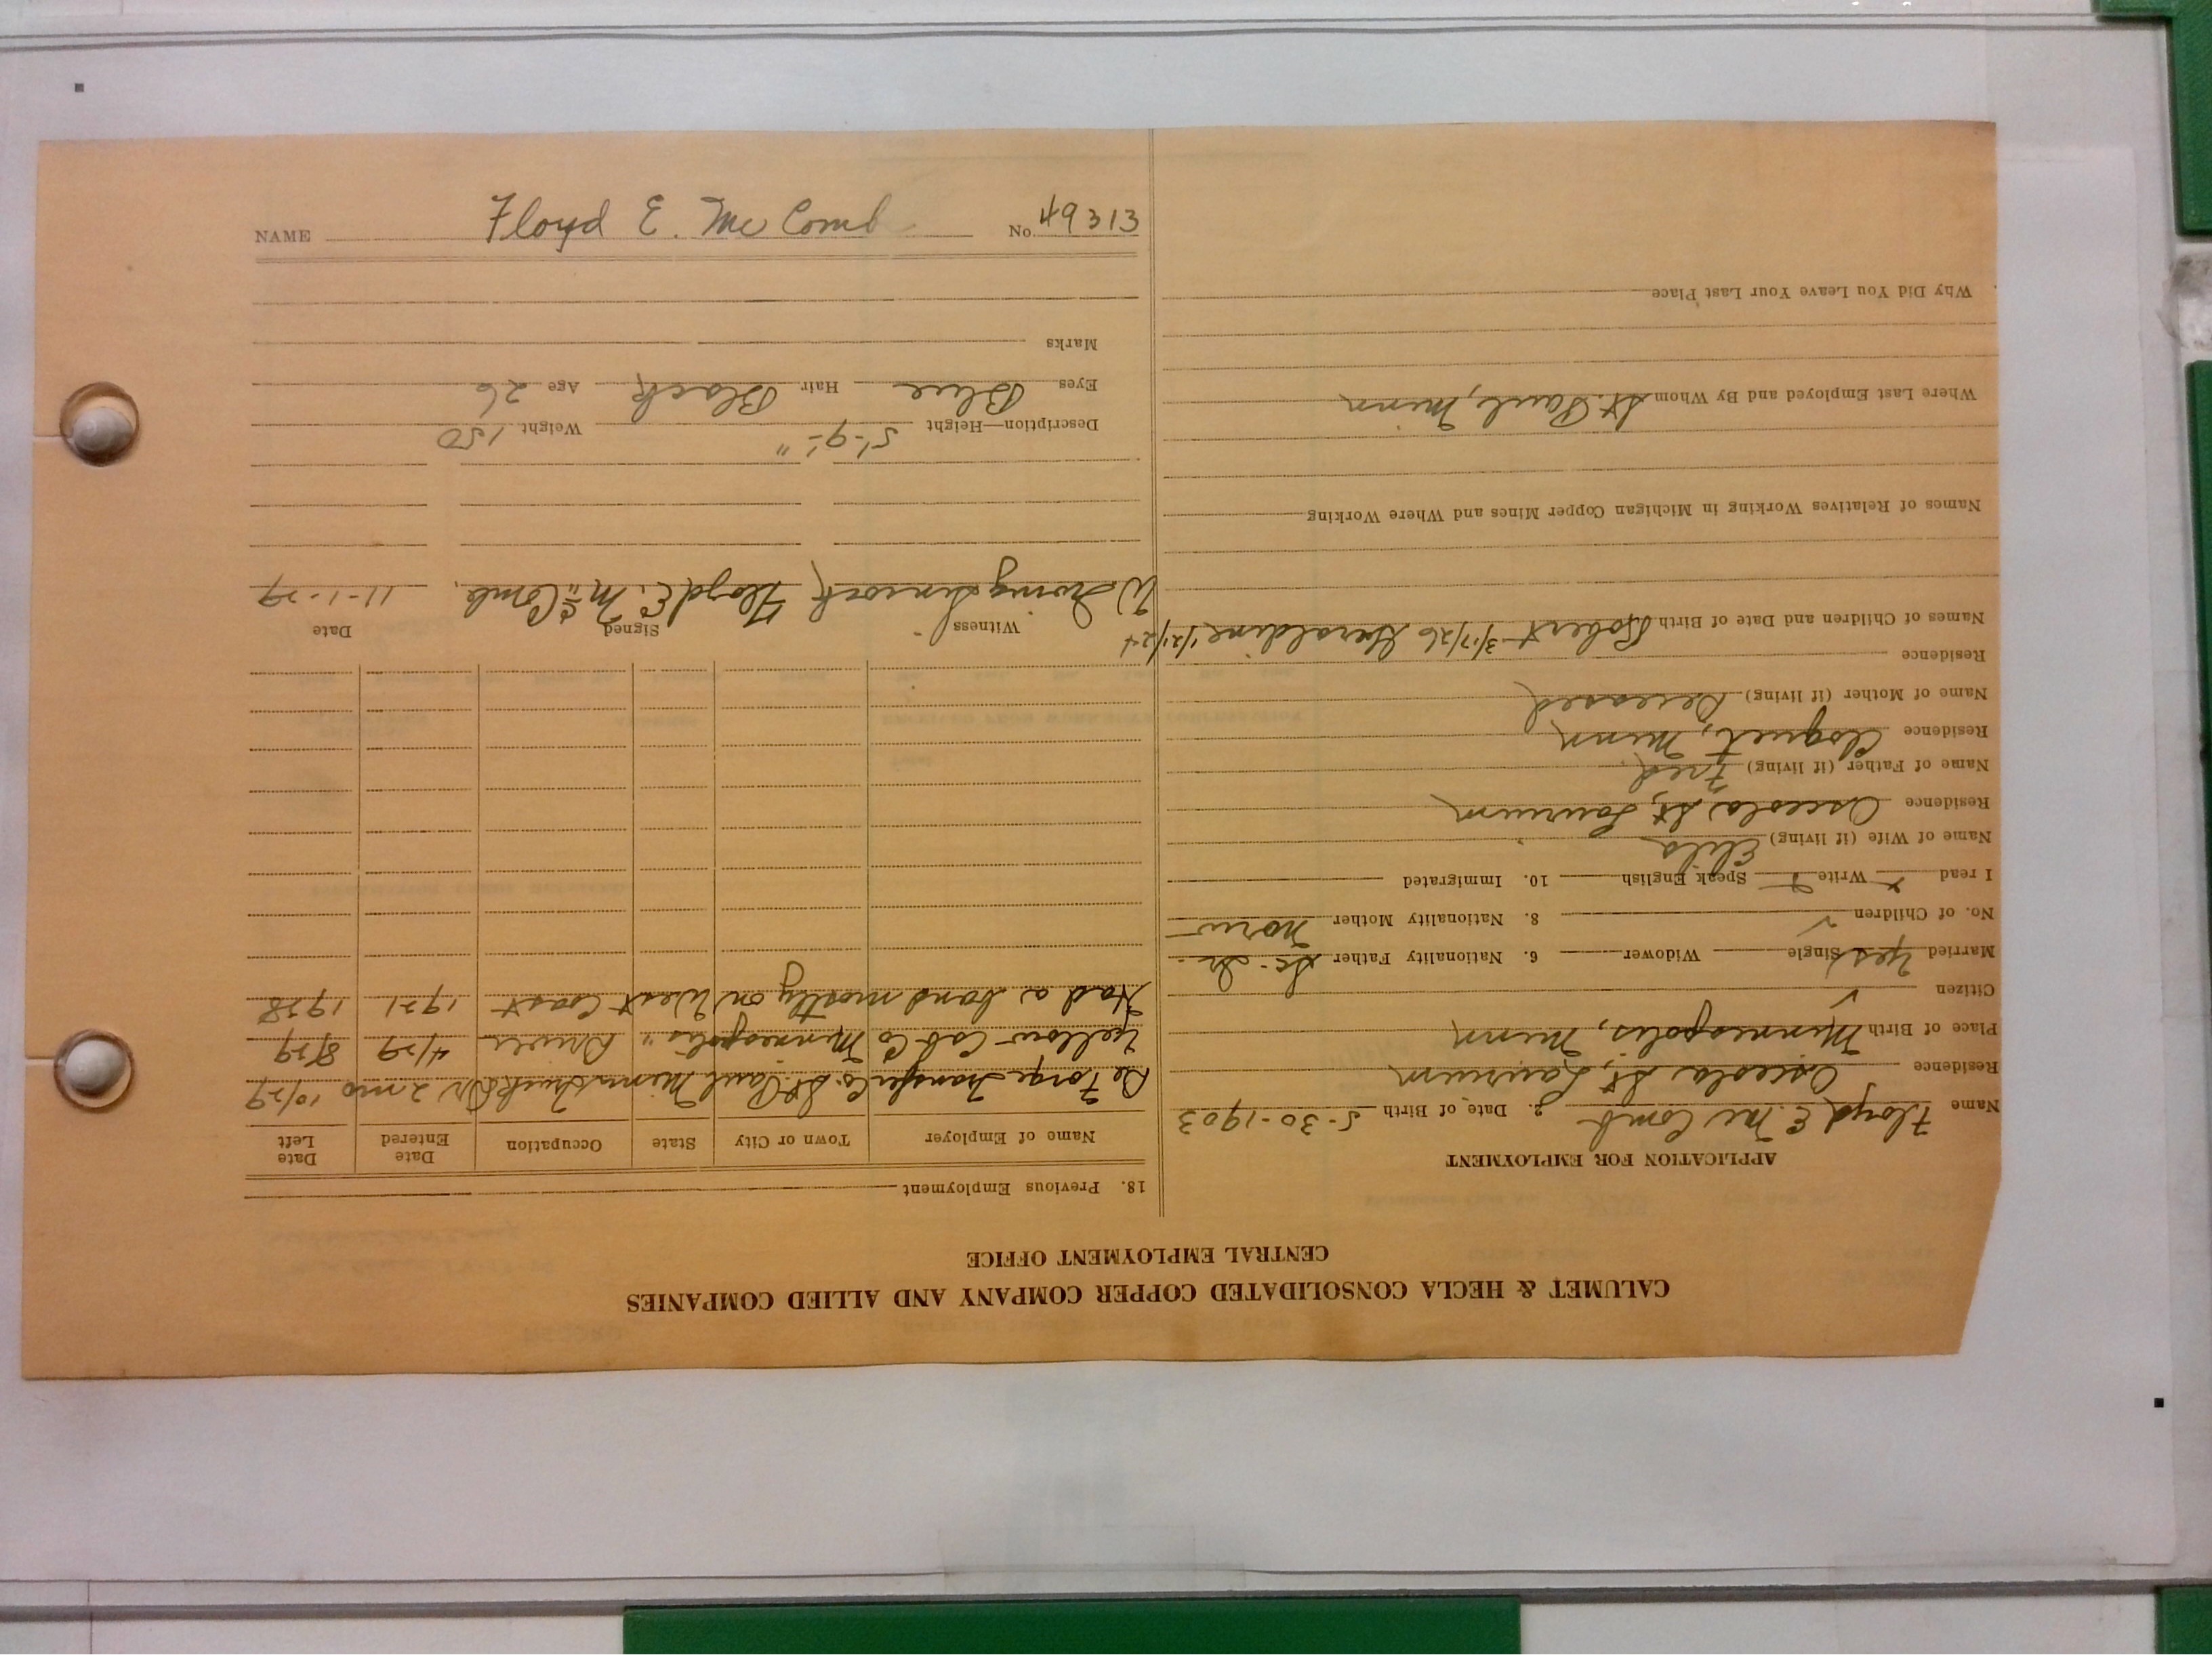 CALUMET & HECLA CONSOLIDATED COPPER COMPANY AND ALLIED COMPANIES
CENTRAL EMPLOYMENT OFFICE
APPLICATION FOR EMPLOYMENT
Name Floyd E. Mc Comb 2. Date of Birth 5-30-1903
Residence Osceola St, Laurium
Place of Birth Minneapolis, Minn
Citizen ✓
Married Yes Single Widower 6. Nationality Father Sc-Ir-
No. of Children 8. Nationality Mother Norw-
I read Write Speak English 10. Immigrated
Name of Wife (if living)
Residence Osceola St, Laurium
Name of Father (if living) Fred
Residence Cloquet, Minn
Name of Mother (if living) Deceased
Residence
Names of Children and Date of Birth Robert 3/17/26 Geraldine 1/21/24
Names of Relatives Working in Michigan Copper Mines and Where Working
Where Last Employed and By Whom St. Paul, Minn
Why Did You Leave Your Last Place
18. Previous Employment
Name of Employer Town or City State Occupation Date Entered Date Left
De Forge Transfer Co. St. Paul Minn Truck Dr 2 mo 10/29
Yellow Cab Co Minneapolis " Driver 4/29 8/29
Had a band mostly on West Coast 1921 1928
Witness Signed Date
W Irving Floyd E. McComb. 11-1-29
Description—Height 5'-9-" Weight 150
Eyes Blue Hair Black Age 26
Marks
NAME Floyd E. Mc Comb No. 49313